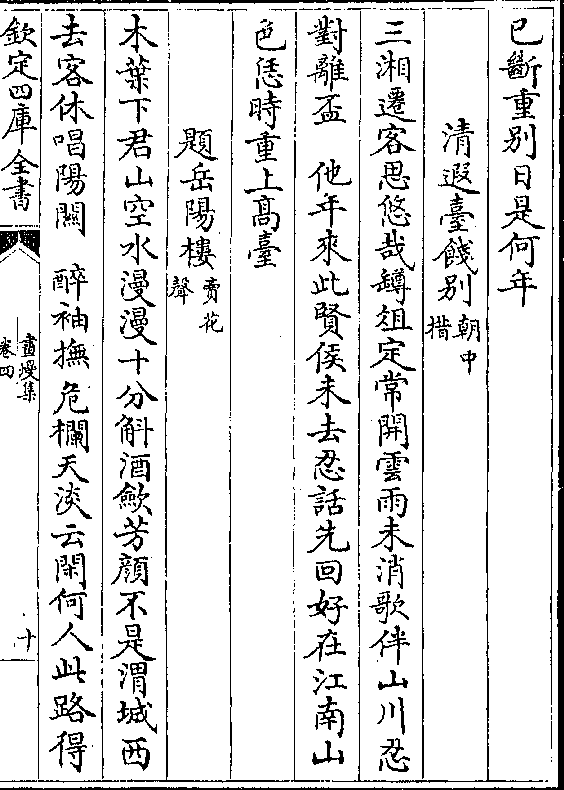 已斷重别日是何年
清遐臺餞别朝中
措
三湘遷客思悠哉罇俎定常開雲雨未消歌伴山川忍
對離盃　他年來此賢侯未去忍話先回好在江南山
色恁時重上髙臺
題岳陽樓賣花
聲
木葉下君山空水漫漫十分斛酒歛芳顔不是渭城西
去客休唱陽闗　醉袖撫危欄天淡云閑何人此路得
欽定四庫全書
畫墁集
卷四
十